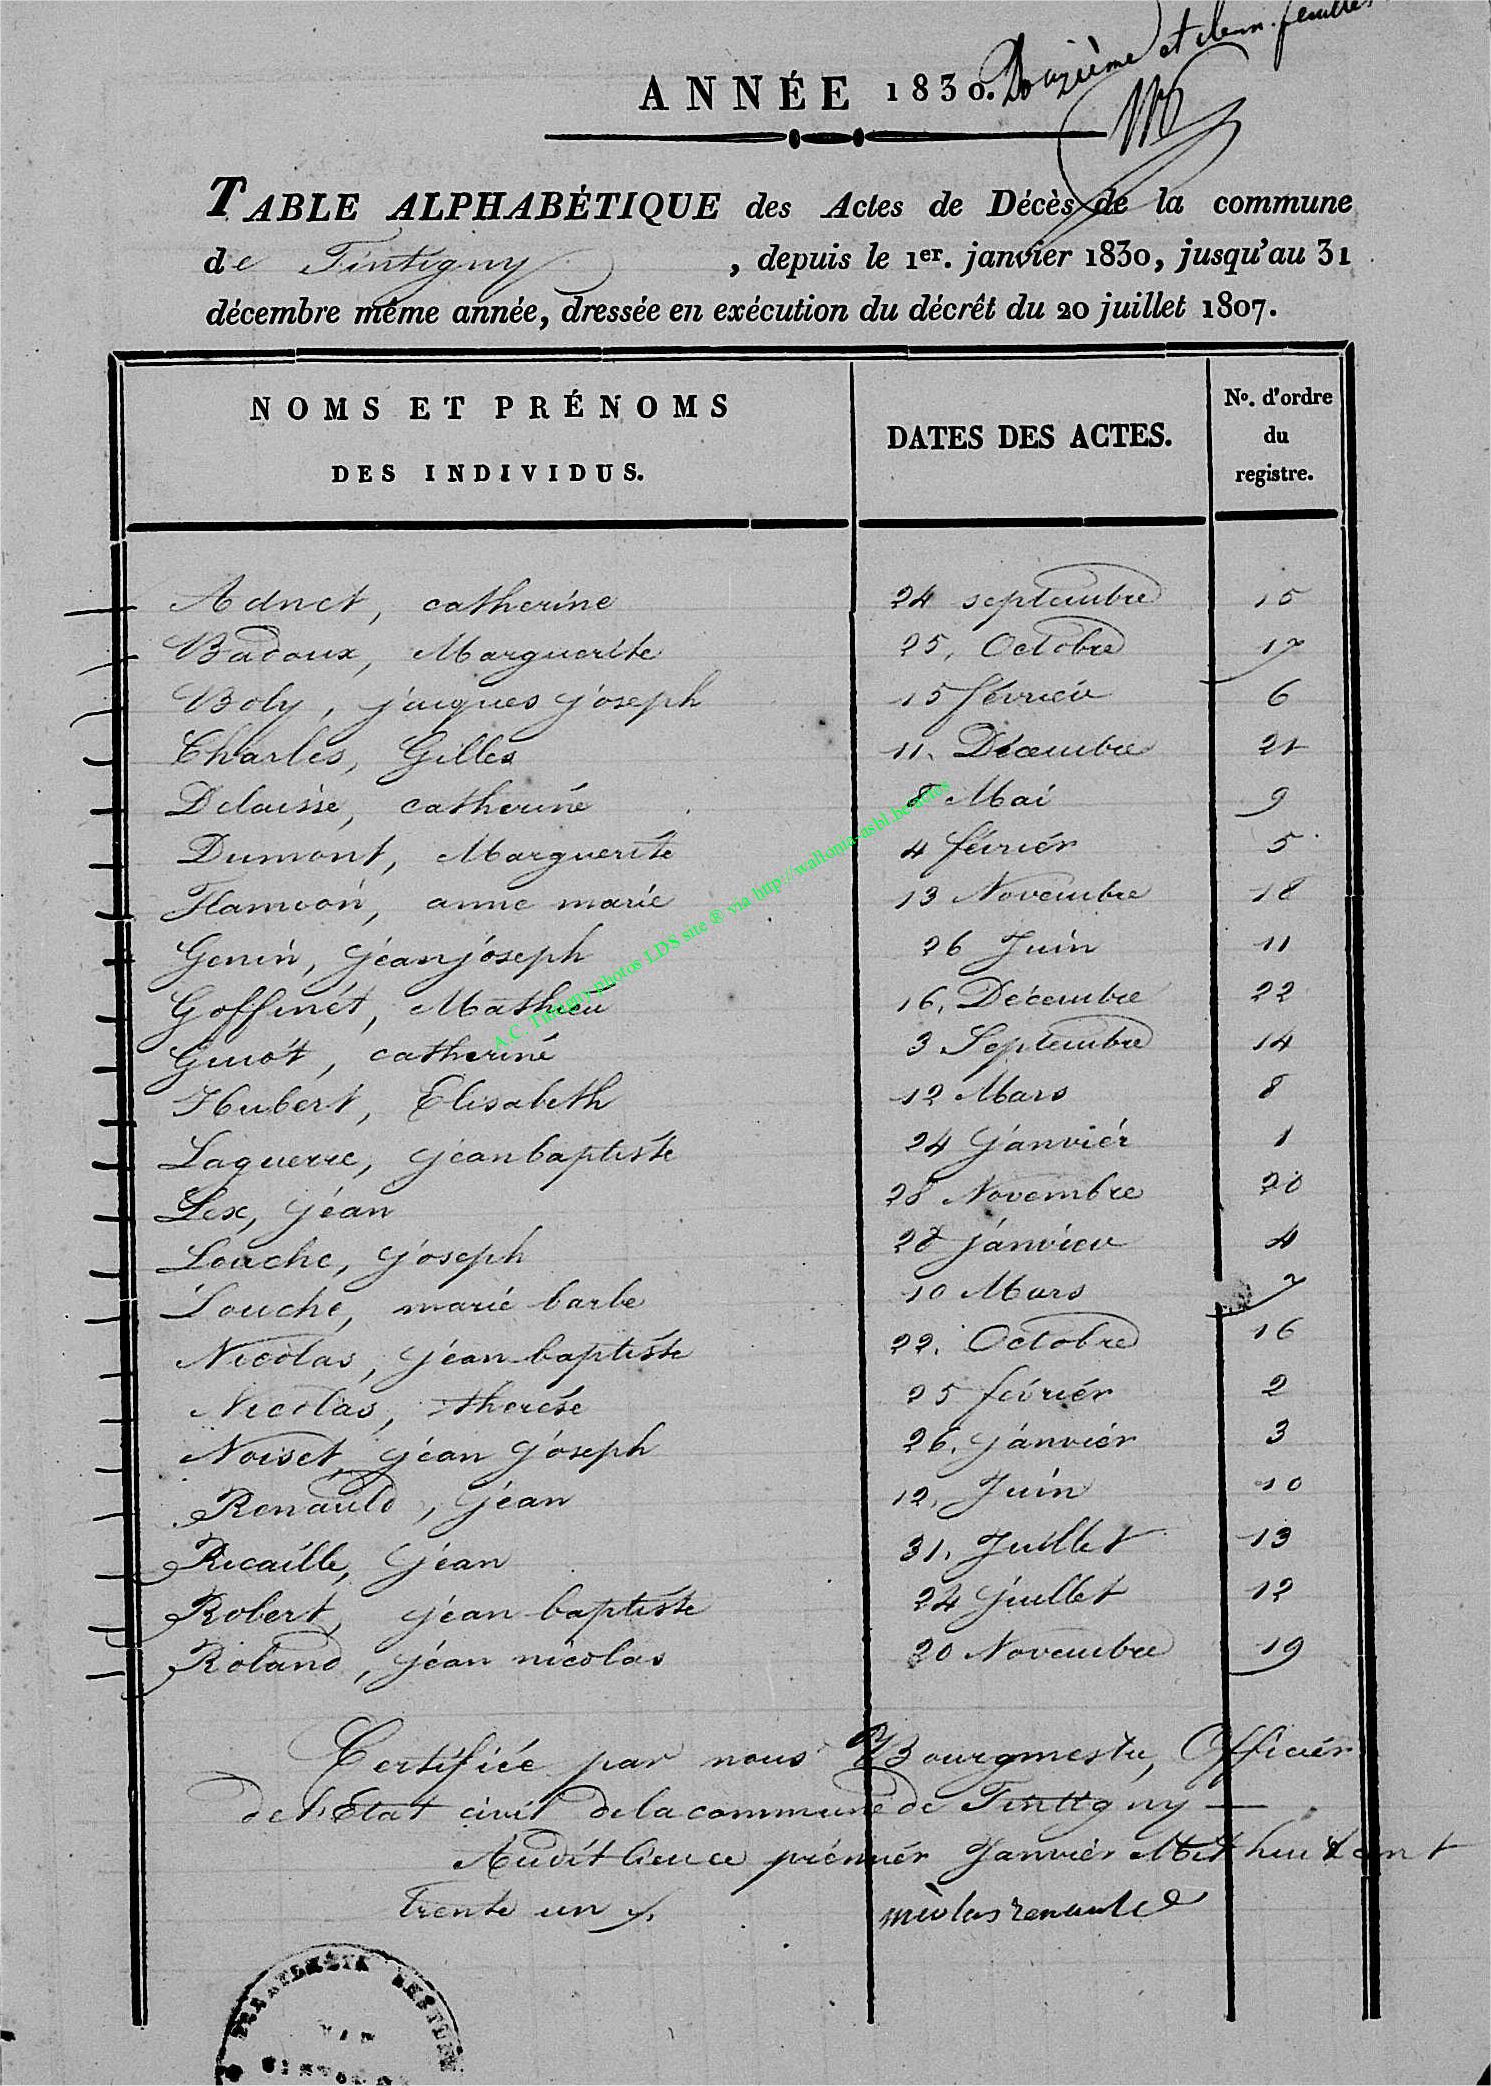 Douzième et dern. feuillet
ANNÉE 1830.
TABLE ALPHABÉTIQUE des Actes de Décès de la commune
de Tintigny , depuis le 1er. janvier 1830, jusqu'au 31
décembre même année, dressée en exécution du décrêt du 20 juillet 1807.
NOMS ET PRÉNOMS DES INDIVIDUS. DATES DES ACTES. No. d'ordre du registre.
Adnet, catherine 24 septembre 15
Badoux, Marguerite 25, Octobre 17
Boly, jacques joseph 15 février 6
Charles, Gilles 11. Décembre 21
Delaisse, catherine 8 Mai 9
Dumont, Marguerite 4 février 5
Flamion, anne marie 13 Novembre 18
Genin, jean joseph 26 Juin 11
Goffinet, Mathieu 16, Décembre 22
Guiot, catherine 3 Septembre 14
Hubert, Elisabeth 12 Mars 8
Laguerre, jean baptiste 24 janvier 1
Lex, jean 28 Novembre 20
Louche, joseph 28 janvier 4
Louche, marie barbe 10 Mars 7
Nicolas, jean baptiste 22, Octobre 16
Nicolas, therése 25 février 2
Noiset, jean joseph 26, janvier 3
Renauld, jean 12, Juin 10
Ricaille, jean 31, Juillet 13
Robert, jean baptiste 24 juillet 12
Roland, jean nicolas 20 Novembre 19
Certifiée par nous Bourgmestre, Officier
de l'Etat civil de la commune de Tintigny
Audit lieu ce prémiér Janvier Mil huit cent
Trente un
nicolas renauld
A.C. Tintigny photos LDS site ® via http://wallonia-asbl.be/actes